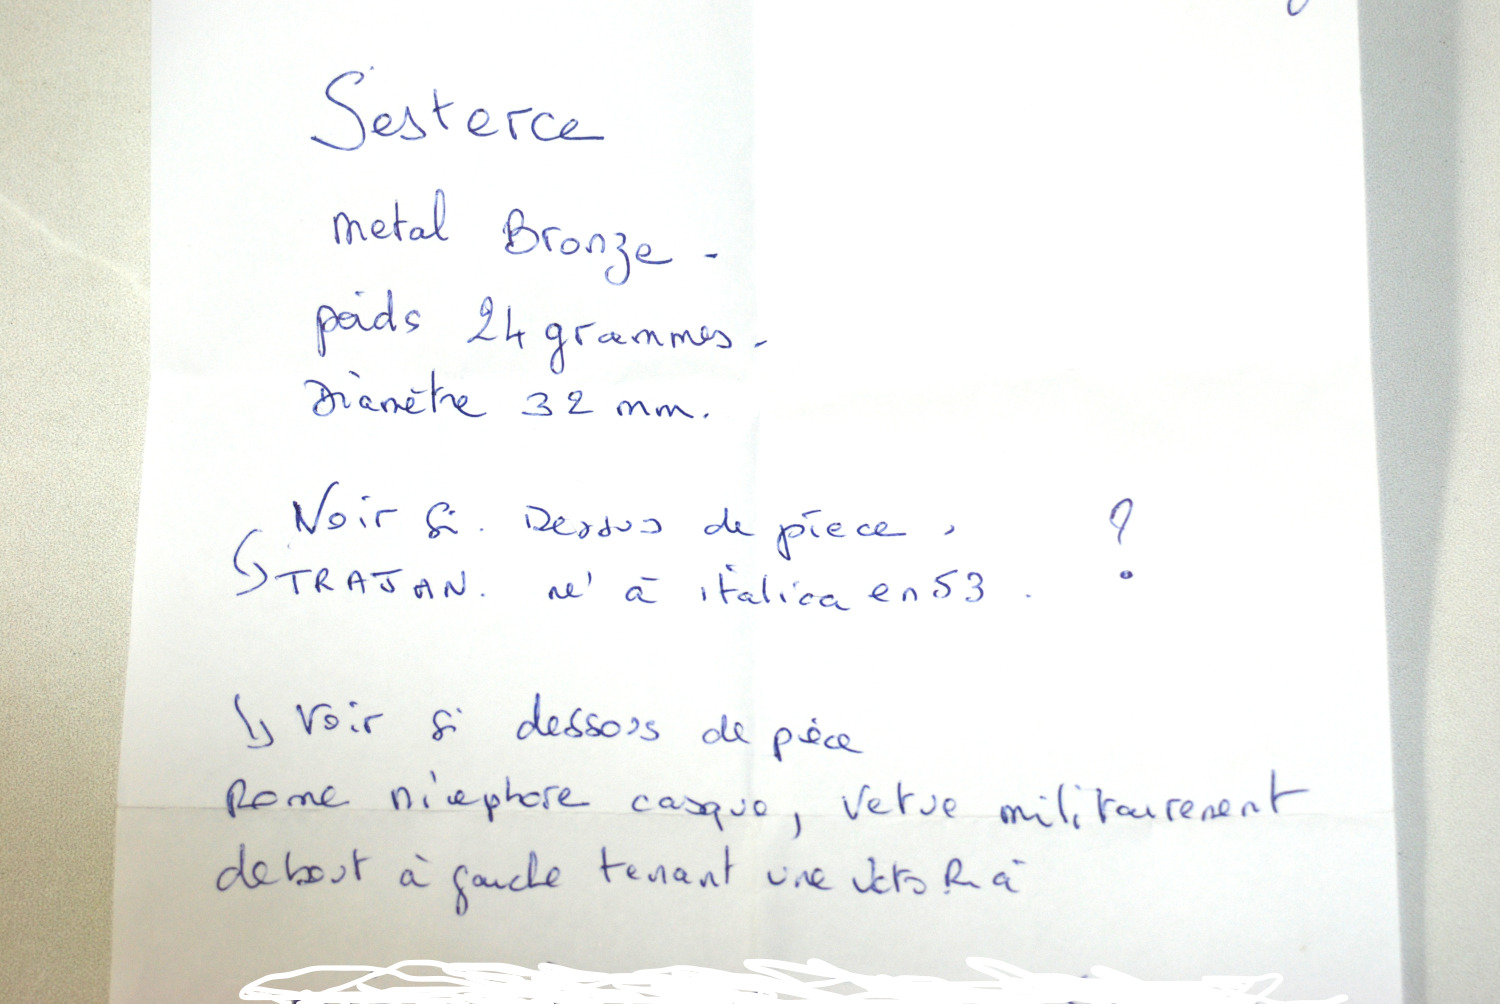 Sesterce
metal Bronze -
poids 24 grammes.
Diamètre 32 mm.
Voir si. Dessus de pièce, ?
TRAJAN. né à italica en 53.
Voir si dessous de pièce
Rome nicephore casque, vetue militairement
debout à gauche tenant une